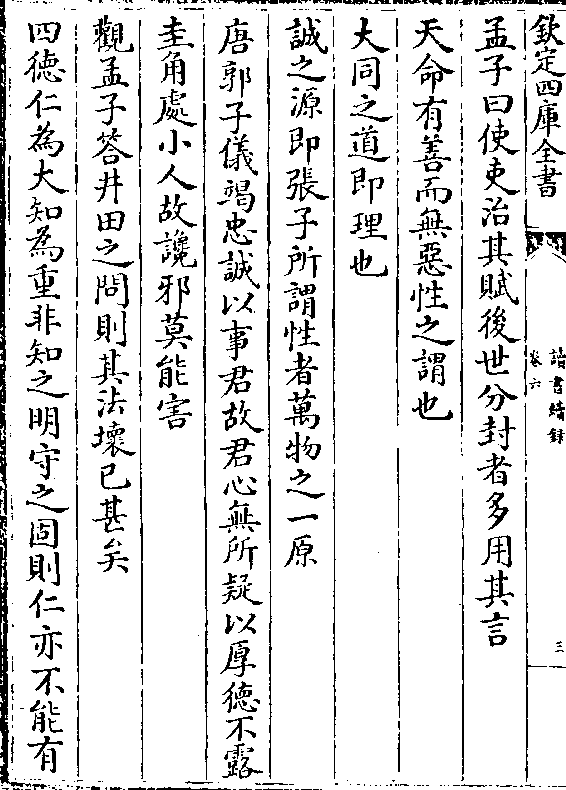 欽定四庫全書
讀書續錄
卷六
三
孟子曰使吏治其賦後世分封者多用其言
天命有善而無惡性之謂也
大同之道即理也
誠之源即張子所謂性者萬物之一原
唐郭子儀竭忠誠以事君故君心無所疑以厚德不露
圭角處小人故讒邪莫能害
觀孟子答井田之問則其法壞已甚矣
四德仁為大知為重非知之明守之固則仁亦不能有